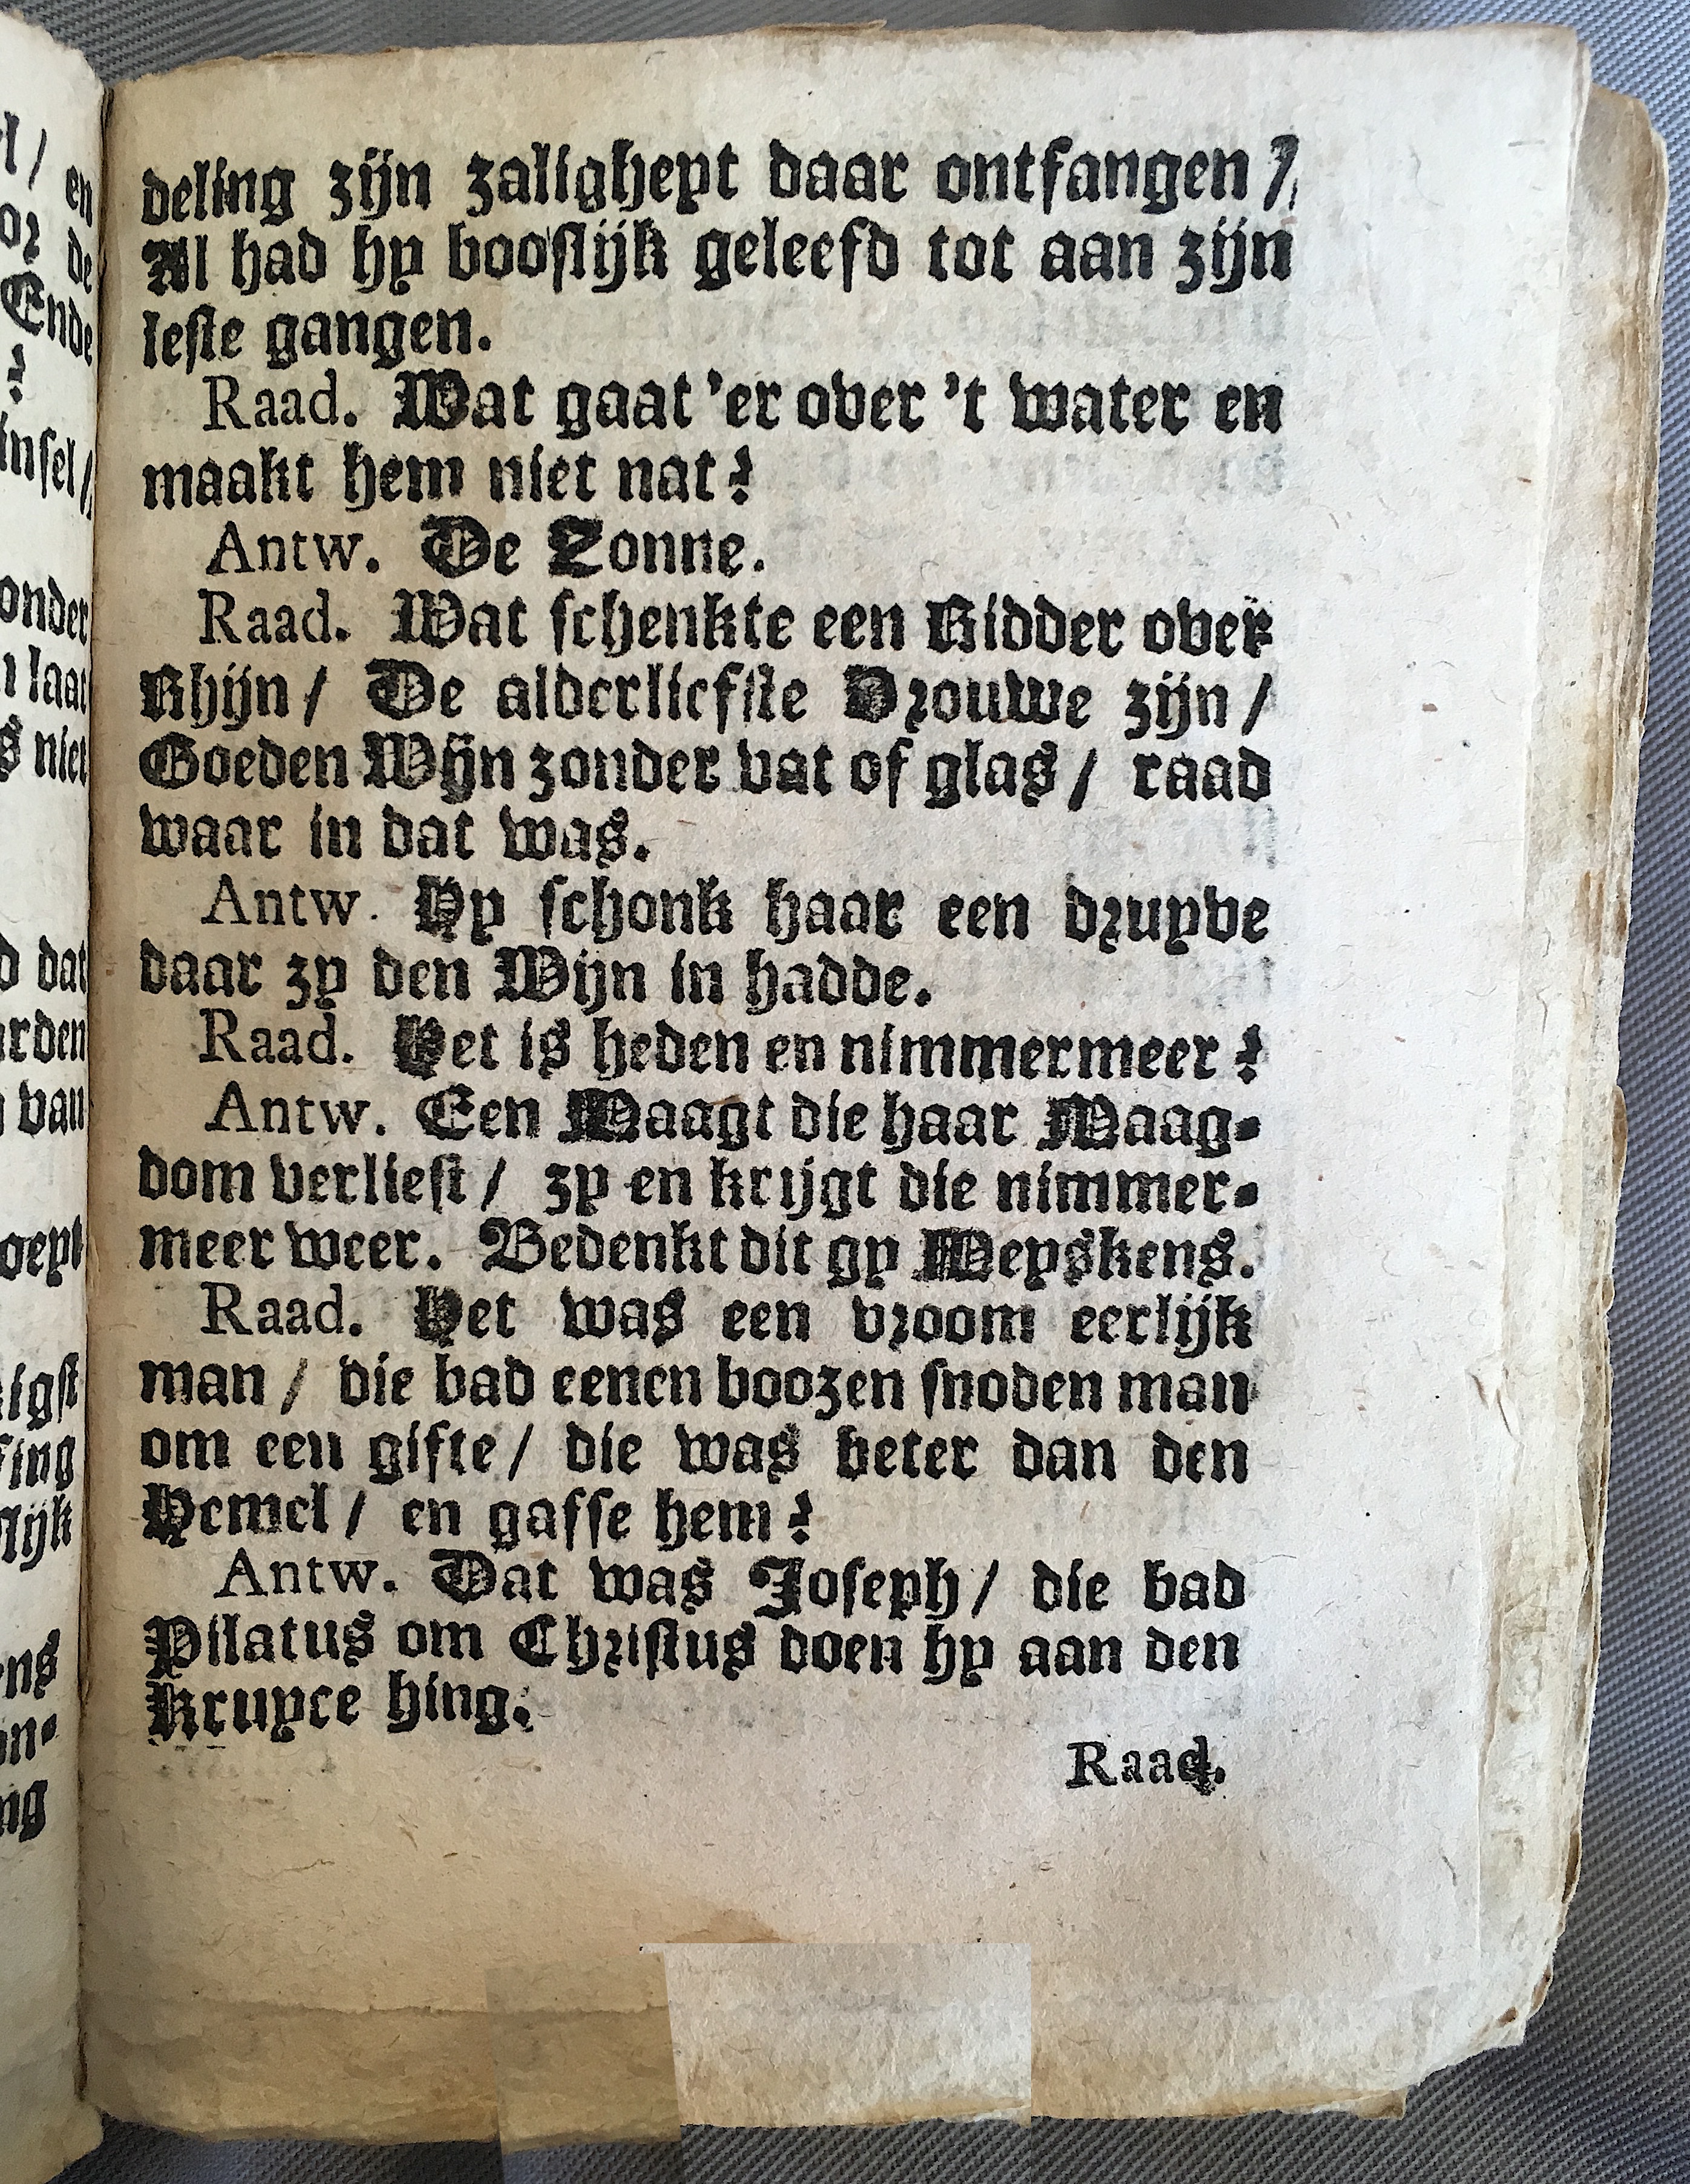 deling zijn zaligheyt daar ontfangen /
Al had hy booslijk geleefd tot aan zijn
leste gangen.
Raad. Wat gaat 'er over 't water en
maakt hem niet nat?
Antw. De Zonne.
Raad. Wat schenkte een Ridder over
Rhijn / De alderliefste Vrouwe zijn /
Goeden Wijn zonder vat of glas / raad
waar in dat was.
Antw. Hy schonk haar een druyve
daar zy den Wijn in hadde.
Raad. Het is heden en nimmermeer?
Antw. Een Maagt die haar Maag-
dom verliest / zy en krijgt die nimmer-
meer weer. Bedenkt dit gy Meyskens.
Raad. Het was een vroom eerlijk
man / die bad eenen boozen snoden man
om een gifte / die was beter dan den
Hemel / en gafse hem?
Antw. Dat was Joseph / die bad
Pilatus om Christus doen hy aan den
Kruyce hing.
Raad.
l /
en
or
de
Ende
?
insel /
onder
laat
s niet
dat
rden
van
oept
igst
fing
lijk
ens
on-
ng